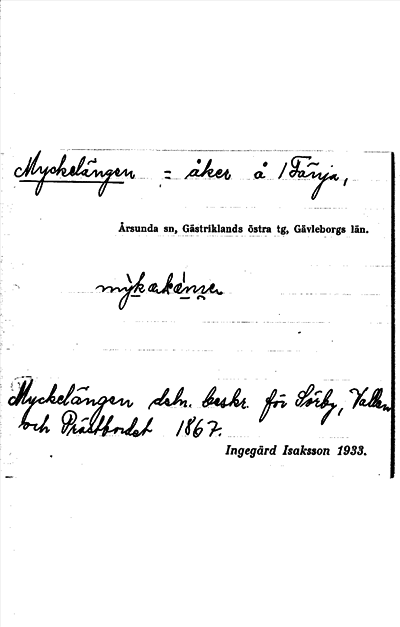 Myckelängen = åker å /Färja,
Årsunda sn, Gästriklands östra tg, Gävleborgs län.
Myckelängen deln. beskr. för Sörby, Vallen
och Prästbordet 1867.
Ingegärd Isaksson 1933.